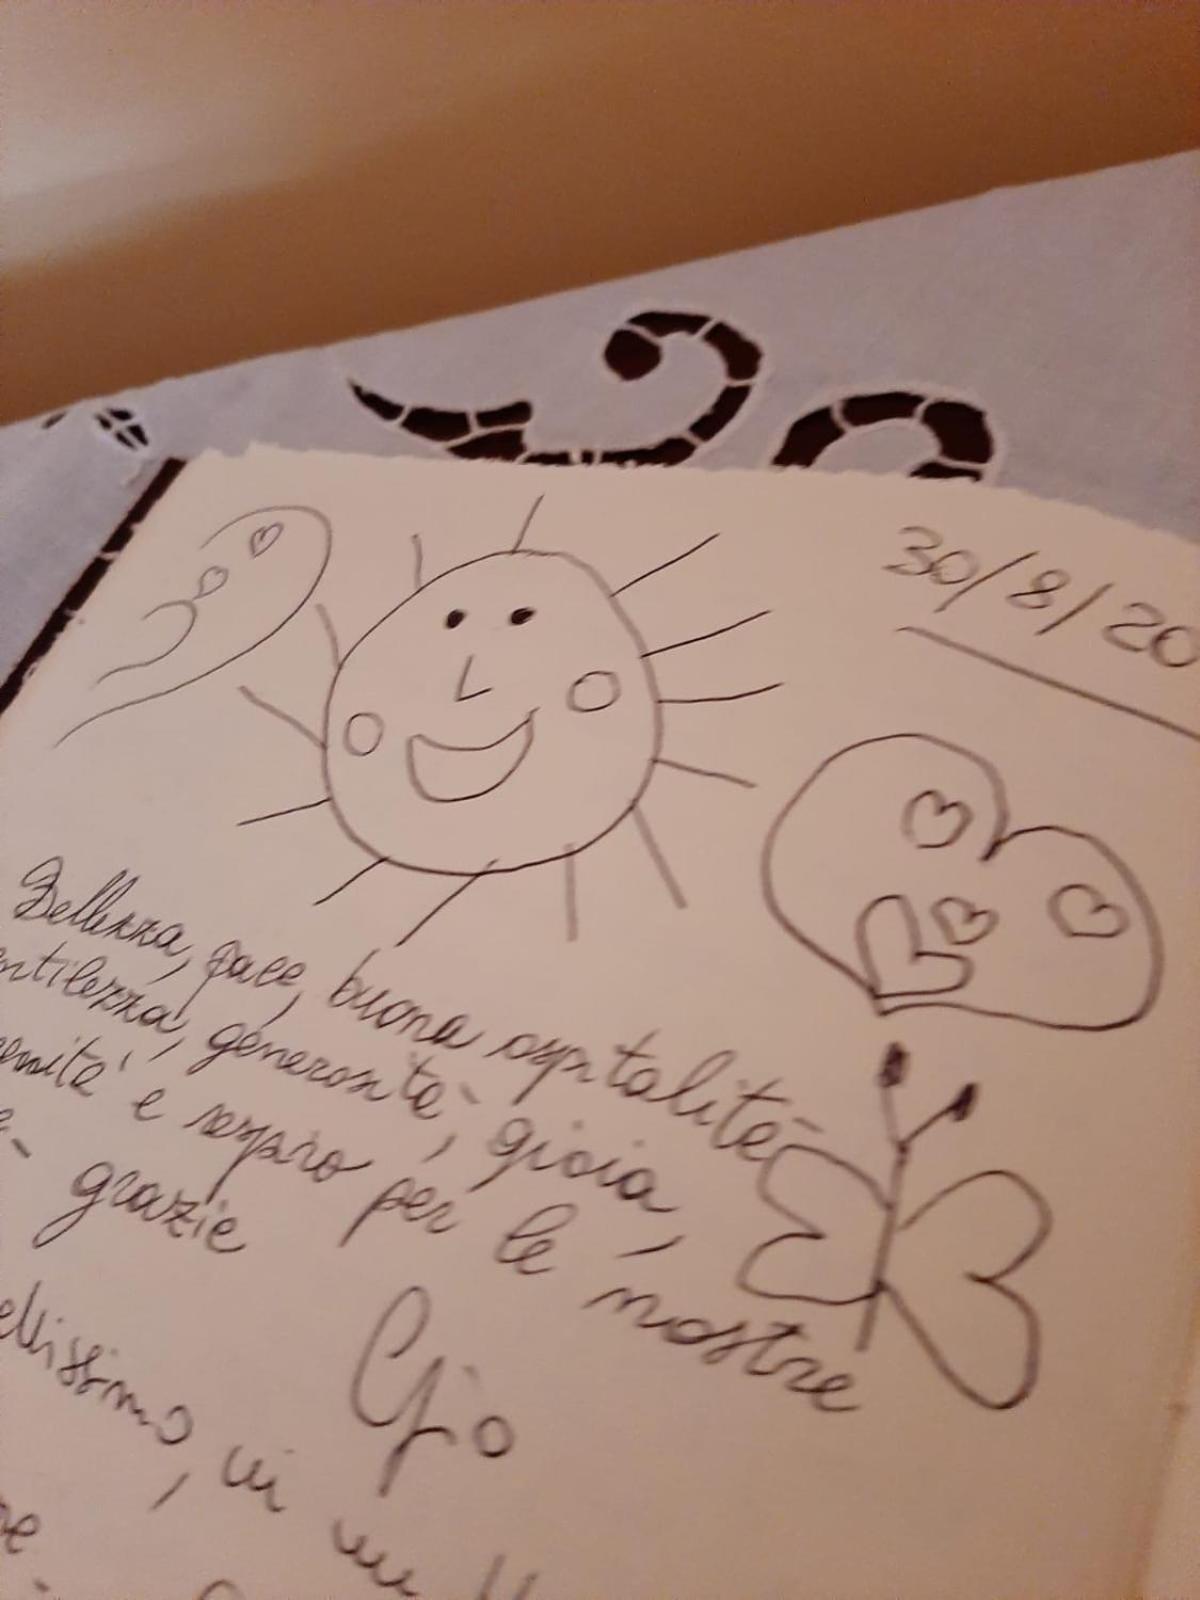 30/8/20
Bellezza, pace, buona ospitalità
ntilezza, generosità, gioia,
enità e respiro per le nostre
grazie
Gio
ellissimo, in un